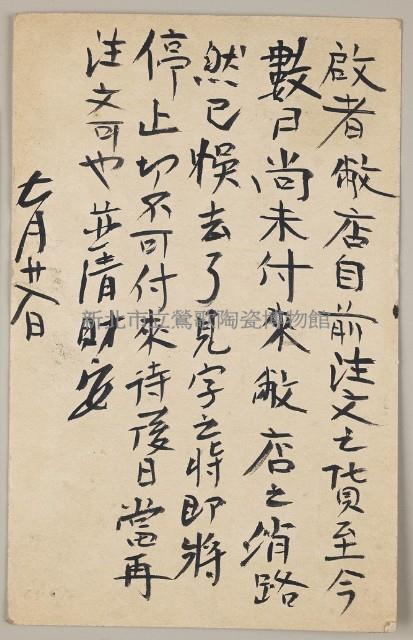 啟者敝店自前注文之貨至今
數日尚未付來敝店之銷路
然已悞去了見字之時即將
停止切不可付來待後日當再
注文可也並請財安
七月廿八日
新北市立鶯歌陶瓷博物館